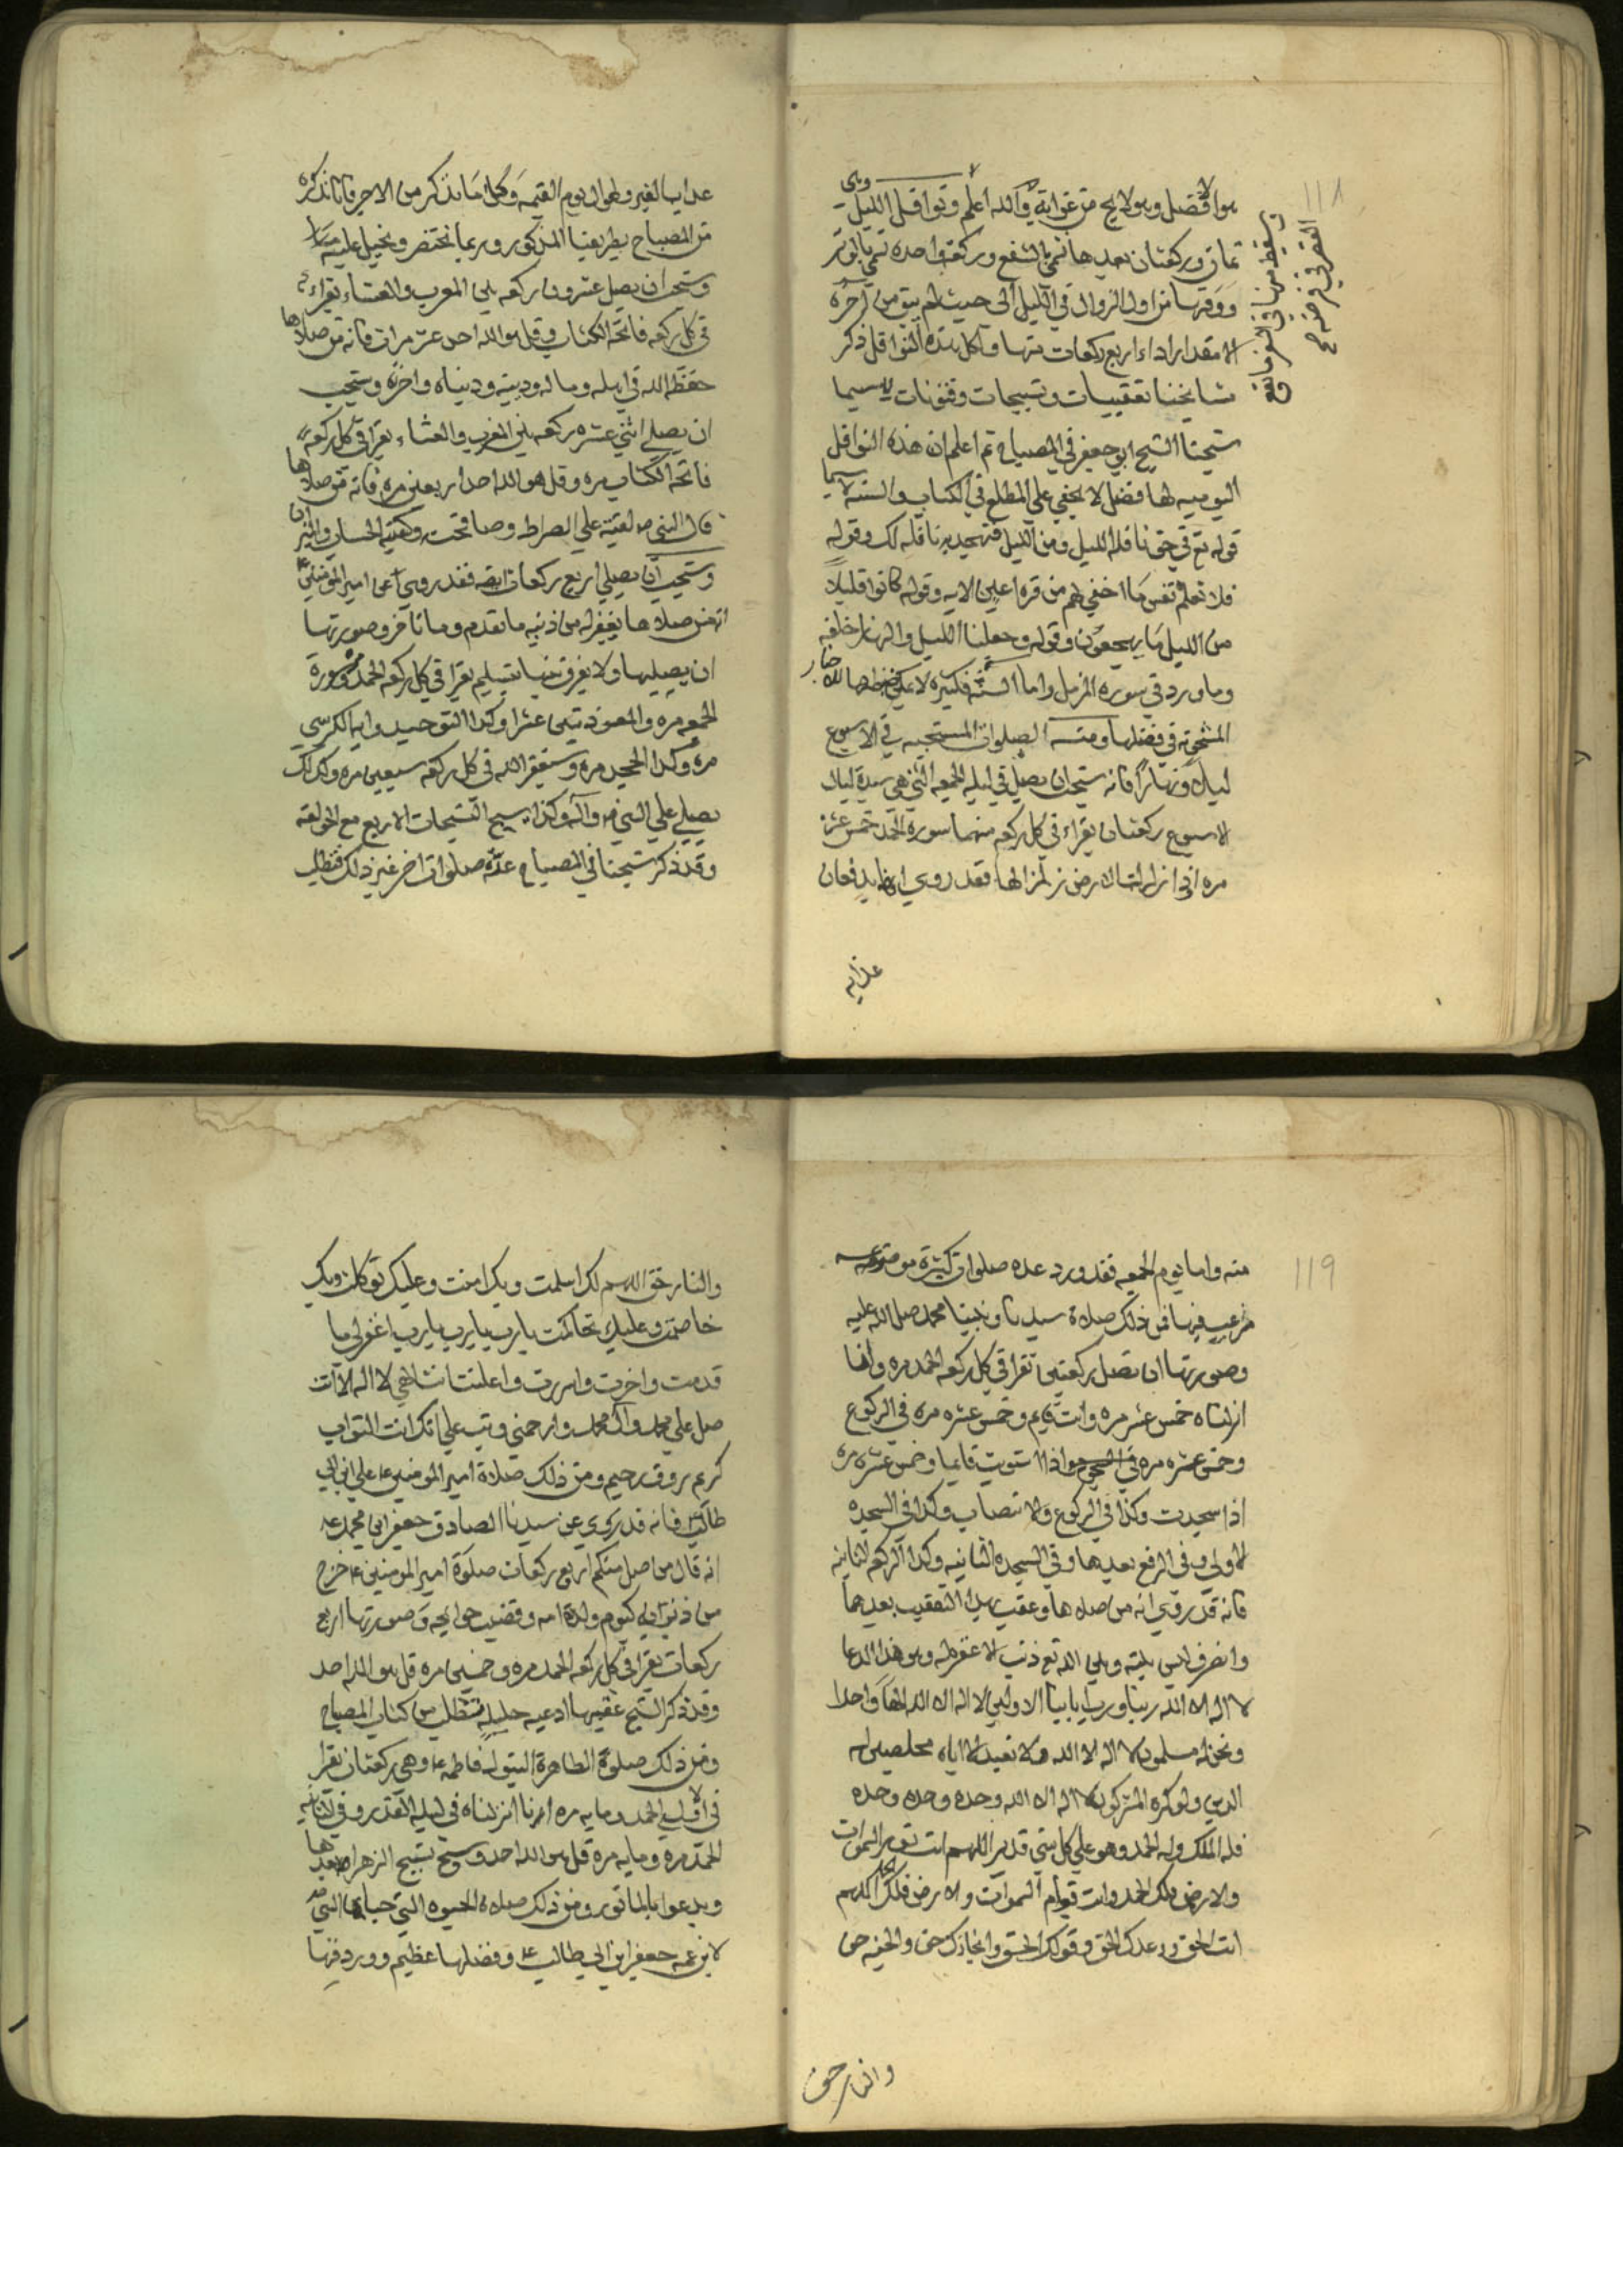 118
هو الافضل وهو لا يخ من غوابة والله اعلم ونوافل الليل وهى
ثمان وركعتان بعدها تسمي بالشفع وركعة واحده تسمي بالوتر
ووقتها من اول الزوال في الليل الى حيث لم يبق من آخره
الا مقدار اداء اربع ركعات منها ولكل هذه النوافل ذكر
مشايخنا تعقيبات وتسبيحات وقنوتات لاسيما
شيخنا الشيخ ابو جعفر في المصباح ثم اعلم ان هذه النوافل
اليوميه لها فضل لا يخفي علي المطلع في الكتاب والسنه لاسيما
قوله تع في حق نافله الليل ومن الليل فتهجد به نافله لك وقوله
فلا تعلم نفس مّا اخفي لهم من قرة اعين الايه وقوله كانوا قليلاً
من الليل ما يهجعون وقوله وجعلنا الليل والنهار خلفه
وما ورد في سوره المزمل واما السنّه فكثيره لا يمكن ضبطها للاخبار
المشحونه في فضلها ومنه الصلوات المستحبه في الاسبوع
ليلاً ونهاراً فانه يستحب ان يصلي في ليله الجمعه التي هي سيدة ليال
الاسبوع ركعتان يقراء في كل ركعه منهما سورة الحمد خمس عشر
مره اذا زلزلت الارض زلزالها فقد روي انهما يدفعان
عذاب
تسقط منها في السفر ما يقع
القصر في فرضه صح
عذاب القبر وطول يوم القيمه وكلّ ما نذكر من الاجر فانا نذكره
من المصباح بطريقنا المذكور وربما نختصر ونحيل عليه
ويستحب ان يصلي عشرون ركعه بين المغرب والعشاء يقراء
في كل ركعه فاتحة الكتاب وقل هو الله احد عشر مرات فانه من صلاها
حفظه الله في اهله وماله ودينه ودنياه واخرته ويستحب
ان يصلي اثني عشره ركعه بين المغرب والعشاء يقرا في كل ركعه
فاتحة الكتاب مره وقل هو الله احد اربعين مره فانه من صلاها
قال النبي ص لقيته علي الصراط وصافحته وكفيته الحساب والميزان
ويستحب ان يصلي اربع ركعات ايضه فقد روي عن امير المؤمنين ع
انه من صلاها يغفر له من ذنبه ما تقدم وما تاخر وصورتها
ان يصليها ولا يفرق بينها بتسليم يقرا في كل ركعه الحمد مره وسورة
الجمعه مره والمعوذتين عشرا وكذا التوحيد وايه الكرسي
مره وكذا الجحد مره ويستغفر الله في كل ركعه سبعين مره وكذلك
يصلي علي النبي ص وآله وكذا يسبح التسبيحات الاربع مع الحولقه
وقد ذكر شيخنا في المصباح عدّه صلوات اخر غير ذلك فتطلب
119
منه واما يوم الجمعه فقد ورد عده صلوات كثيرة
مرغب فيها فمن ذلك صلاة سيدنا ونبينا محمد صلي الله عليه
وصورتها ان تصل ركعتين تقرا في كل ركعه الحمد مره وانا
انزلناه خمس عشر مره وانت قايم وخمس عشره مره في الركوع
وخمس عشره مره اذا استويت قايما وخمس عشره مره
اذا سجدت وكذا في الركوع والانتصاب وكذا في السجده
الاولي وفي الرفع بعدها وفي السجده الثانيه وكذا الركعه الثانيه
فانه قد روي انه من صلاها وعقب بهذا التعقيب بعدهما
وانصرف ليس بينه وبين الله تع ذنب الا غفر له وهو هذا الدعا
لا اله الا الله ربنا ورب ابائنا الاولين لا اله الا الله الهاً واحدا
ونحن له مسلمون لا اله الا الله ولا نعبد الا اياه مخلصين له
الدين ولو كره المشركون لا اله الا الله وحده وحده وحده
فله الملك وله الحمد وهو علي كل شي قدير اللهم انت نور السموات
والارض فلك الحمد وانت قيوام السموات والارض فلك الحمد اللهم
انت الحق ووعدك الحق وقولك الحق وانجازك حق والجنه حق
والنار حق
والنار حق اللهم لك اسلمت وبك امنت وعليك توكلت وبك
خاصمت وعليك تحاكمت يارب يارب يارب اغفر لي ما
قدمت واخرت واسررت واعلنت انت الهي لا اله الا انت
صل علي محمد وال محمد وارحمني وتب علي انك انت التواب
كريم رووف رحيم ومن ذلك صلاة امير المومنين ع علي ابن ابي
طالب فانه قد روي عن سيدنا الصادق جعفر ابن محمد ع
انه قال من صل منكم اربع ركعات صلوة امير المومنين ع خرج
من ذنوبه كيوم ولدة امه وقضيت حوايجه وصورتها اربع
ركعات يقرا في كل ركعه الحمد مره وخمسين مره قل هو الله احد
وقد ذكر الشيخ عقيبها ادعيه جليله فتطلب من كتاب المصباح
ومن ذلك صلوة الطاهرة البتول فاطمه ع وهي ركعتان يقرا
في الاولي الحمد ومايه مره انا انزلناه في ليله القدر وفي الثانيه
الحمد مره ومايه مرة قل هو الله احد ويسبح تسبيح الزهراء بعدها
ويدعوا بالماثور ومن ذلك صلاة الحبوه التي حباها النبي ص
لابن عمه جعفر ابن ابي طالب ع وفضلها عظيم وورد فيها